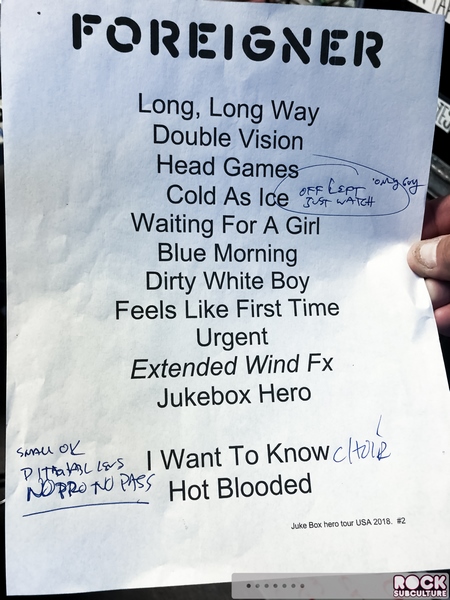 FOREIGNER
Long, Long Way
Double Vision
Head Games
Cold As Ice OFF LEFT 'only guy
JUST WATCH
Waiting For A Girl
Blue Morning
Dirty White Boy
Feels Like First Time
Urgent
Extended Wind Fx
Jukebox Hero
SMALL OK
I Want To Know CHOIR
NO PRO NO PASS
Hot Blooded
Juke Box hero tour USA 2018. #2
ROCK
SUBCULTURE